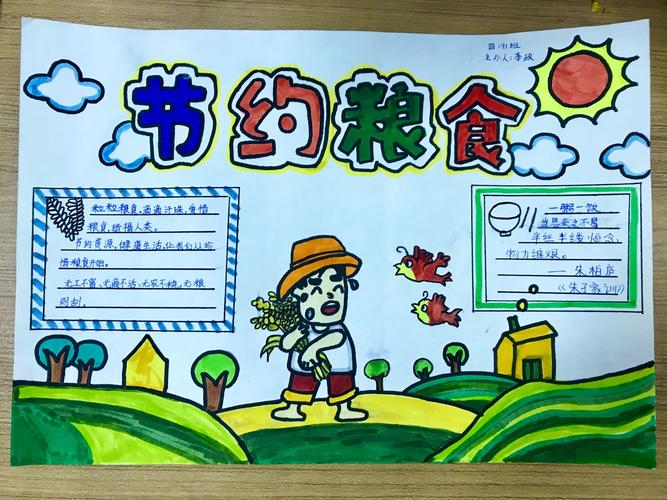 四(9)班
主办人:李政
节约粮食
粒粒粮食,滴滴汗珠,爱惜
粮食,造福人类。
节约资源,健康生活,让我们从珍
惜粮食开始。
无工不富、无商不活、无农不稳,无粮
则刮。
一粥一饭
当思来之不易
半丝半缕恒念,
物力维艰。
——朱柏庐
《朱子家训》